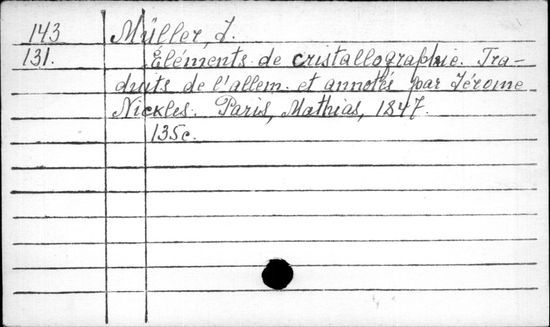 143 Müller, J.
131. Éléments de cristallographie. Tra-
duits de l'allem. et annotés par Jérome
Nicklès. Paris, Mathias, 1847.
135c.